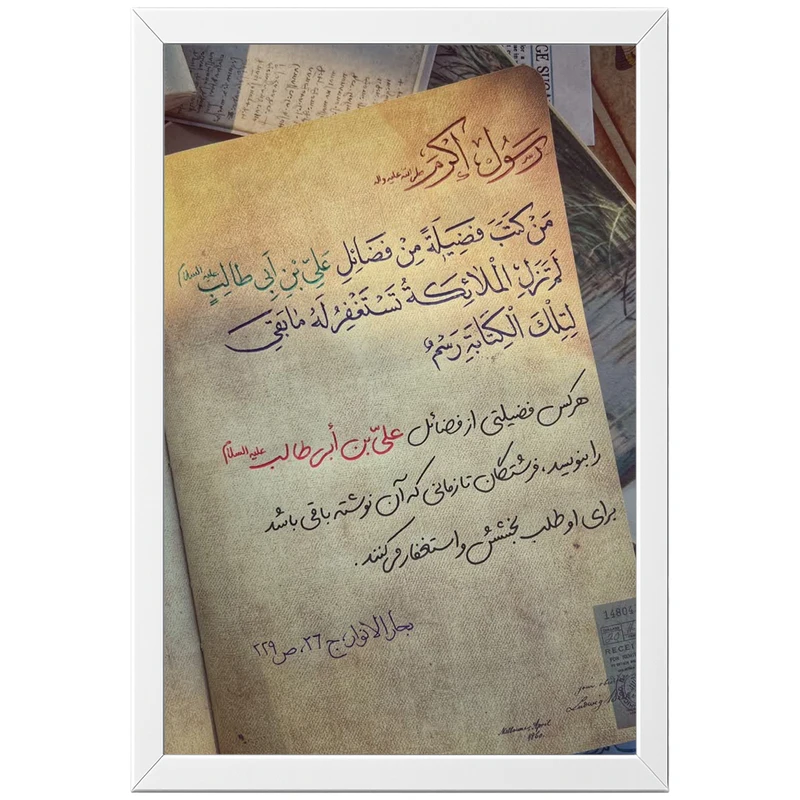 رَسُولِ اکْرَمْ صلی الله علیه واله
مَنْ كَتَبَ فَضِيلَةً مِنْ فَضَائِلِ عَلِيِّ بْنِ أَبِي طالِبٍ عليه السلام
لَمْ تَزَلِ الْمَلائِكَةُ تَسْتَغْفِرُ لَهُ مٰا بَقِيَ
لِتِلْكَ الْكِتَابَةِ رَسْمٌ
هرکس فضیلتی از فضائل علیّ بن أبی طالب علیه السلام
را بنویسد، فرشتگان تا زمانی که آن نوشته باقی باشد
برای او طلب بخشش و استغفار می‌کنند.
بحار الانوار، ج ۲۶، ص ۲۲۹
14804
RECEI